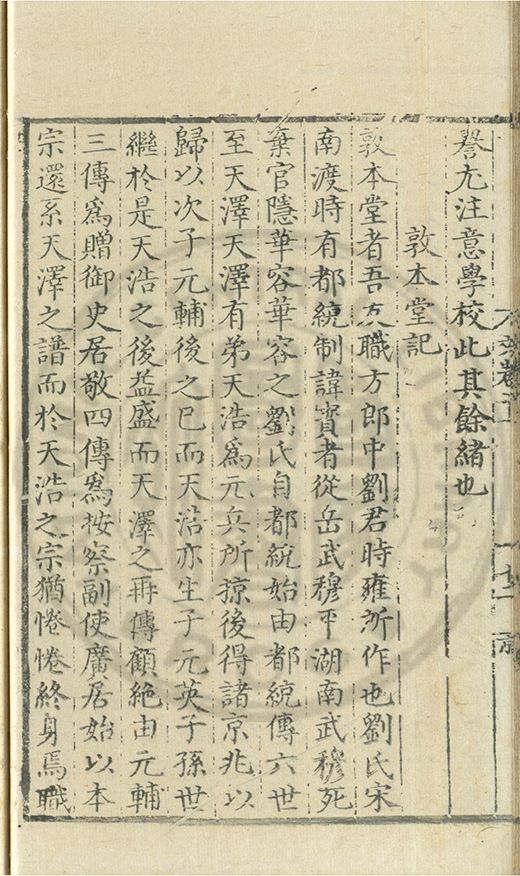 譽尤注意學校此其餘緒也
敦本堂記
敦本堂者吾友職方郎中劉君時雍所作也劉氏宋
南渡時有都統制諱寳者從岳武穆平湖南武穆死
棄官隱華容華容之劉氏自都統始由都統傳六世
至天澤天澤有弟天浩為元兵所掠後得諸京兆以
歸以次子元輔後之已而天浩亦生子元英子孫世
繼於是天浩之後益盛而天澤之再傳顧絶由元輔
三傳為贈御史居敬四傳為按察副使廣居始以本
宗還系天澤之譜而於天浩之宗猶惓惓終身焉職